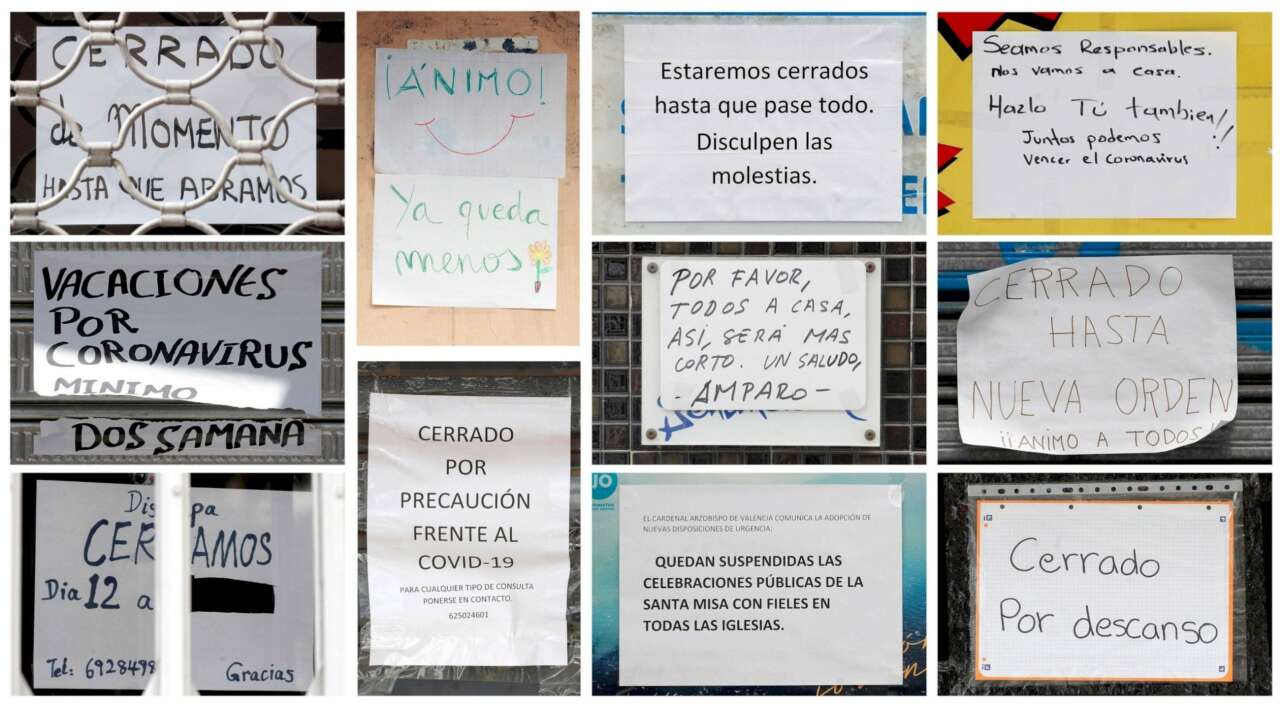 CERRADO
de MOMENTO
HASTA QUE ABRAMOS
¡ÁNIMO!
Ya queda
menos
Estaremos cerrados
hasta que pase todo.
Disculpen las
molestias.
Seamos Responsables.
Nos vamos a casa.
Hazlo Tú tambien!!
Juntos podemos
vencer el Coronavirus
VACACIONES
POR
CORONAVIRUS
MINIMO
DOS SAMANA
CERRADO
POR
PRECAUCIÓN
FRENTE AL
COVID-19
PARA CUALQUIER TIPO DE CONSULTA
PONERSE EN CONTACTO.
625024601
POR FAVOR,
TODOS A CASA,
ASÍ, SERÁ MAS
CORTO. UN SALUDO,
- AMPARO -
CERRADO
HASTA
NUEVA ORDEN
¡¡ANIMO A TODOS!!
Dis pa
CER AMOS
Dia 12 a
Tel: 6928498
Gracias
JO
EL CARDENAL ARZOBISPO DE VALENCIA COMUNICA LA ADOPCIÓN DE
NUEVAS DISPOSICIONES DE URGENCIA:
QUEDAN SUSPENDIDAS LAS
CELEBRACIONES PÚBLICAS DE LA
SANTA MISA CON FIELES EN
TODAS LAS IGLESIAS.
Cerrado
Por descanso